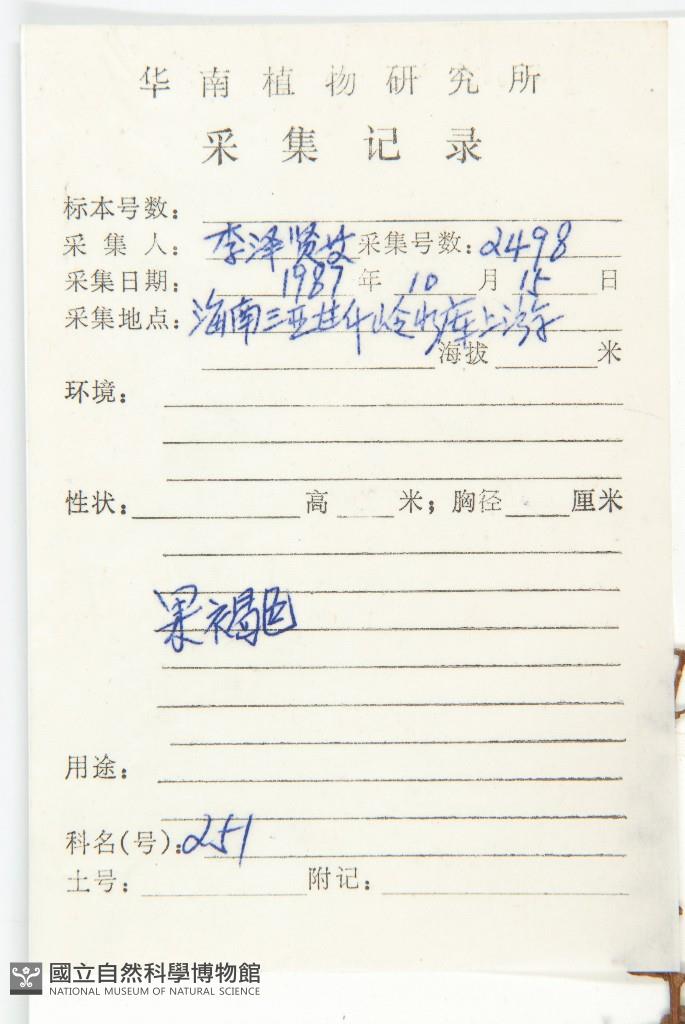 华南植物研究所
采集记录
标本号数：
采集人：李泽贤 采集号数：2498
采集日期：1987年10月15日
采集地点：海南三亚 岭水库上游
海拔 米
环境：
性状： 高 米；胸径 厘米
果褐色
用途：
科名(号)：251
土号： 附记：
國立自然科學博物館
NATIONAL MUSEUM OF NATURAL SCIENCE